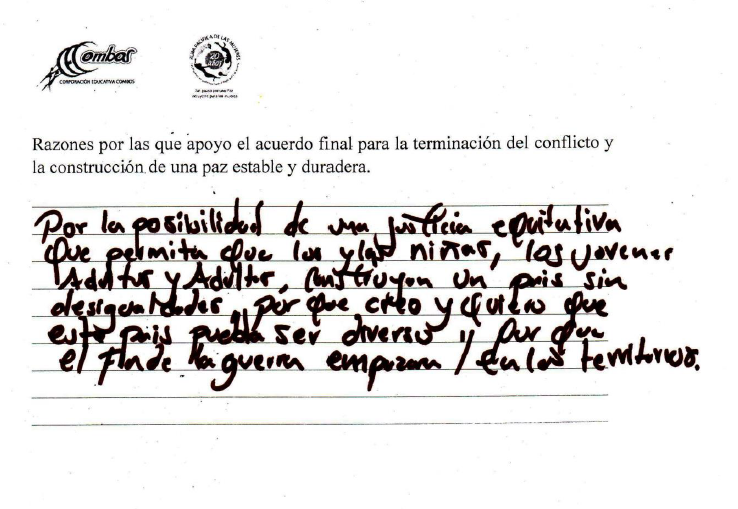 Combos
CORPORACIÓN EDUCATIVA COMBOS
RUTA PACÍFICA DE LAS MUJERES
20 años
Razones por las que apoyo el acuerdo final para la terminación del conflicto y
la construcción de una paz estable y duradera.
Por la posibilidad de una justicia equitativa
que permita que los y las niñas, los jovenes
Adultos y Adultas, construyan un pais sin
desigualdades, por que creo y quiero que
este pais pueda ser diverso y por que
el fin de la guerra empezara / en los territorios.